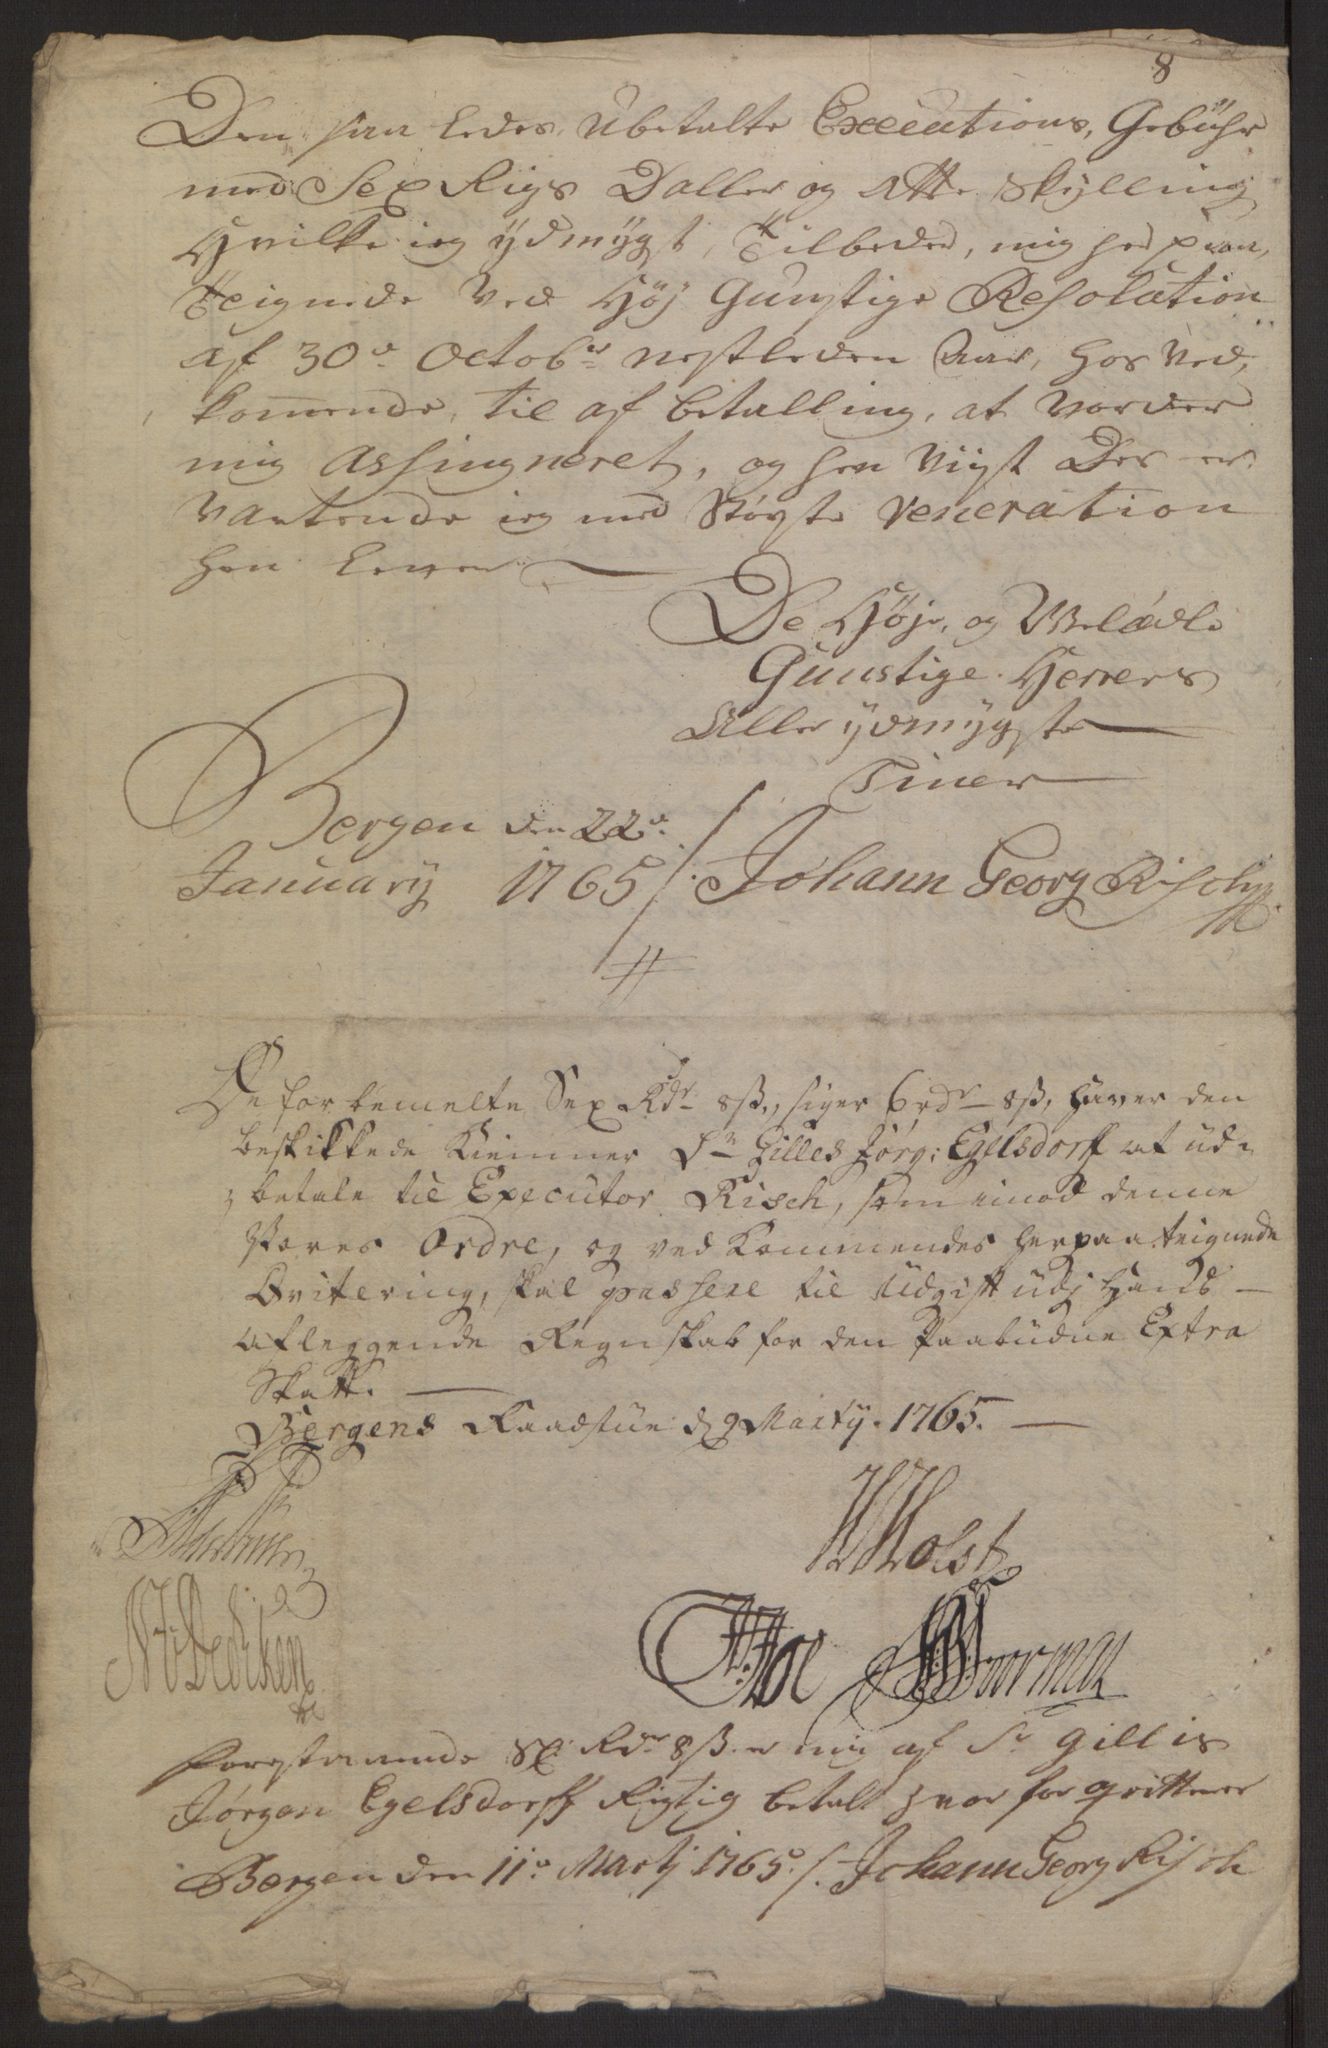 8
Den saa ledes Ubetalte Executions, Gebühr
med Sex Rigs Daller og Atte Skylling
Hvilke ieg ydmygst, Tilbeder, mig her paa,
Teignede Ved Høj Gunstige Resolution
af 30de Octobr nestleden Aar, hos Ved,
kommende, til af betalling, at vorder
mig Assingneret, og hen Vigst Des er
vartende ieg med Støvste Veneration
hen lever
De Høje, og Welædle
Gunstige Herrers
Aller ydmygste
Tiner
Bergen den 22de
January 1765 /: Johann Georg Risch
De for bemelte Sex Rdr 8ß, siger 6rdr 8ß, haver den
beskikkede Kiemner Sr Gilles Jørg: Egelsdorff at ud-
betale til Executor Risch, som imod denne
Vores Ordre, og ved Kommendes herpaa teignede
Qvitering, skal passere til Udgift udj Hands
aflæggende Regnskab for den Paabudne Extra
Skatt.
Bergens Raadstue d 9 Marty. 1765.
Holst
N Dediken
Hoe
Woorman
Forestaaende 6 Rdr 8ß. er mig af Sr Gillis
Jørgen Egelsdorff Rigtig betalt hvor for qvitterer
Bergen den 11te Martj 1765 /. Johann Georg Risch